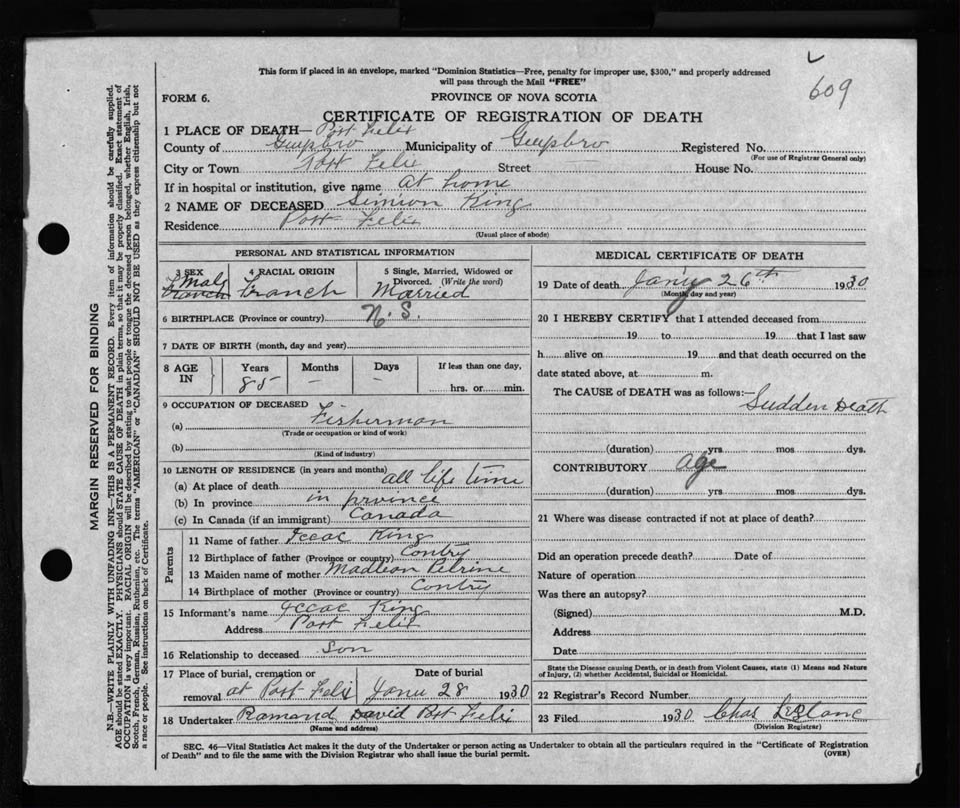 L
609
This form if placed in an envelope, marked "Dominion Statistics—Free, penalty for improper use, $300," and properly addressed
will pass through the Mail "FREE"
FORM 6. PROVINCE OF NOVA SCOTIA
CERTIFICATE OF REGISTRATION OF DEATH
1 PLACE OF DEATH— Port Felix
County of Guysbro Municipality of Guysbro Registered No.
(For use of Registrar General only)
City or Town Port Felix Street House No.
If in hospital or institution, give name at home
2 NAME OF DECEASED Simion King
Residence Port Felix
(Usual place of abode)
PERSONAL AND STATISTICAL INFORMATION
3 SEX 4 RACIAL ORIGIN 5 Single, Married, Widowed or Divorced. (Write the word)
Male franch Married
6 BIRTHPLACE (Province or country) N.S.
7 DATE OF BIRTH (month, day and year)
8 AGE IN Years Months Days If less than one day,
85 – – hrs. or min.
9 OCCUPATION OF DECEASED
(a) Fisherman
(Trade or occupation or kind of work)
(b)
(Kind of industry)
10 LENGTH OF RESIDENCE (in years and months)
(a) At place of death all life time
(b) In province in prvince
(c) In Canada (if an immigrant) Canada
Parents
11 Name of father Iccac King
12 Birthplace of father (Province or country) Contry
13 Maiden name of mother Madlean Pelrine
14 Birthplace of mother (Province or country) Contry
15 Informant's name Iccac King
Address Port Felix
16 Relationship to deceased son
17 Place of burial, cremation or Date of burial
removal at Port Felix Janu 28 1930
18 Undertaker Ramond David Port Felix
(Name and address)
MEDICAL CERTIFICATE OF DEATH
19 Date of death Jan'y 26th 1930
(Month, day and year)
20 I HEREBY CERTIFY that I attended deceased from
19 to 19 that I last saw
h alive on 19 and that death occurred on the
date stated above, at m.
The CAUSE of DEATH was as follows:—
Sudden Death
(duration) yrs. mos dys.
CONTRIBUTORY age
(duration) yrs. mos dys.
21 Where was disease contracted if not at place of death?
Did an operation precede death? Date of
Nature of operation
Was there an autopsy?
(Signed) M.D.
Address
Date
State the Disease causing Death, or in death from Violent Causes, state (1) Means and Nature
of Injury, (2) whether Accidental, Suicidal or Homicidal.
22 Registrar's Record Number
23 Filed 1930 Chas LeBlanc
(Division Registrar)
SEC. 46—Vital Statistics Act makes it the duty of the Undertaker or person acting as Undertaker to obtain all the particulars required in the "Certificate of Registration
of Death" and to file the same with the Division Registrar who shall issue the burial permit. (OVER)
MARGIN RESERVED FOR BINDING
N.B.—WRITE PLAINLY WITH UNFADING INK—THIS IS A PERMANENT RECORD. Every item of information should be carefully supplied.
AGE should be stated EXACTLY. PHYSICIANS should STATE CAUSE OF DEATH in plain terms, so that it may be properly classified. Exact statement of
OCCUPATION is very important. RACIAL ORIGIN will be described by stating to what people or tongue the deceased person belonged, whether English, Irish,
Scotch, French, German, Russian, Ruthenian, etc. The terms "AMERICAN" or "CANADIAN" SHOULD NOT BE USED as they express citizenship but not
a race or people. See instructions on back of Certificate.